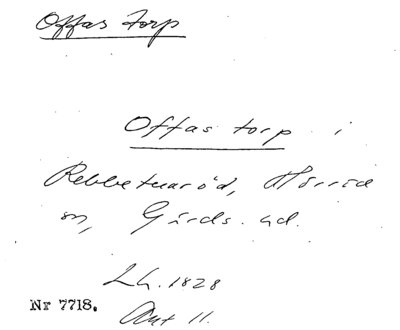 Offas torp
Offas torp i
Rebbetuaröd, Hörröd
sn, Gärds hd.
Lh. 1828
Akt 11.
Nr 7718.